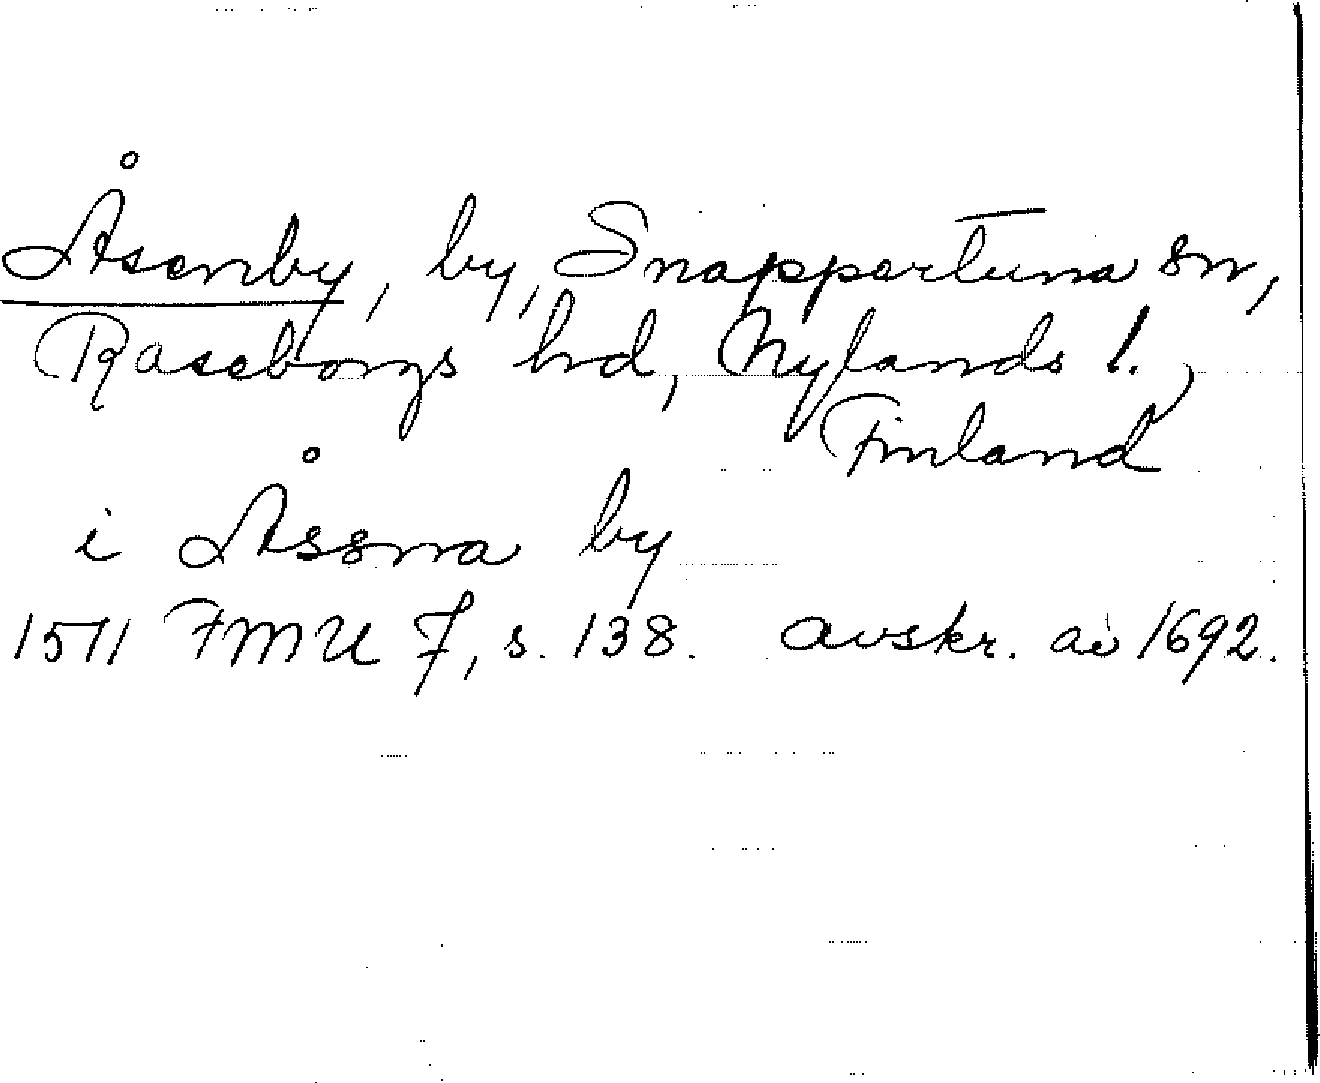 Åsenby, by, Snappertuna sn,
Raseborgs hd, Nylands l.,
Finland
i Åssna by
1511 FMU 7, s. 138. avskr. av 1692.